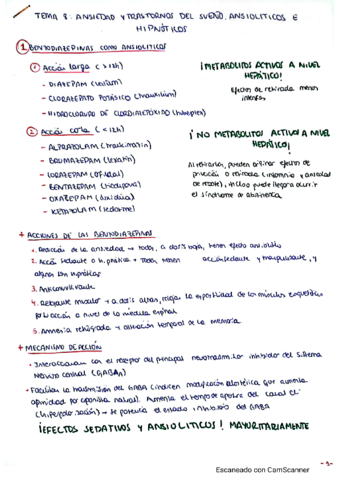 TEMA 8: ANSIEDAD Y TRASTORNOS DEL SUEÑO, ANSIOLITICOS E
HIPNÓTICOS
1 BENZODIAZEPINAS COMO ANSIOLITICOS
1 Acción larga (>12h)
¡METABOLITOS ACTIVOS A NIVEL
HEPÁTICO!
- DIAZEPAM (valium)
Efecto de retirada menos
intenso
- CLORAZEPATO POTÁSICO (tranxilium)
- HIDROCLORURO DE CLORDIAZEPÓXIDO (huberplex)
2 Acción corta (<12h)
¡NO METABOLITOS ACTIVOS A NIVEL
HEPÁTICO!
- ALPRAZOLAM (trankimazin)
- BROMAZEPAM (lexatin)
- LORAZEPAM (orfidal)
- BENTAZEPAM (tiadipona)
- OXAZEPAM
- KETAZOLAM (sedotime)
Al retirarlo, pueden originar efectos de
privación o retirada (insomnio y ansiedad
de rebote), incluso puede llegar a ocurrir
el síndrome de abstinencia
+ ACCIONES DE LAS BENZODIAZEPINAS
1. Reducción de la ansiedad → todas, a dosis bajas, tienen efecto ansiolítico
2. Acción sedante o hipnótica → Todas tienen acción sedante y tranquilizante, y
algunas son hipnóticas
3. Anticonvulsivante
4. Relajante muscular → a dosis altas, relajan la espasticidad de los músculos esqueléticos
por la acción a nivel de la médula espinal
5. Amnesia retrógrada → alteración temporal de la memoria
+ MECANISMO DE ACCIÓN
· Interaccionan con el receptor del principal neurotransmisor inhibidor del Sistema
Nervioso Central (GABAA)
· Facilitan la transmisión del GABA (inducen modificación alostérica que aumenta
afinidad por agonista natural). Aumenta el tiempo de apertura del canal Cl-
(hiperpolarización) → se potencia el estado inhibitorio del GABA
¡EFECTOS SEDATIVOS Y ANSIOLITICOS! MAYORITARIAMENTE
-1-
Escaneado con CamScanner